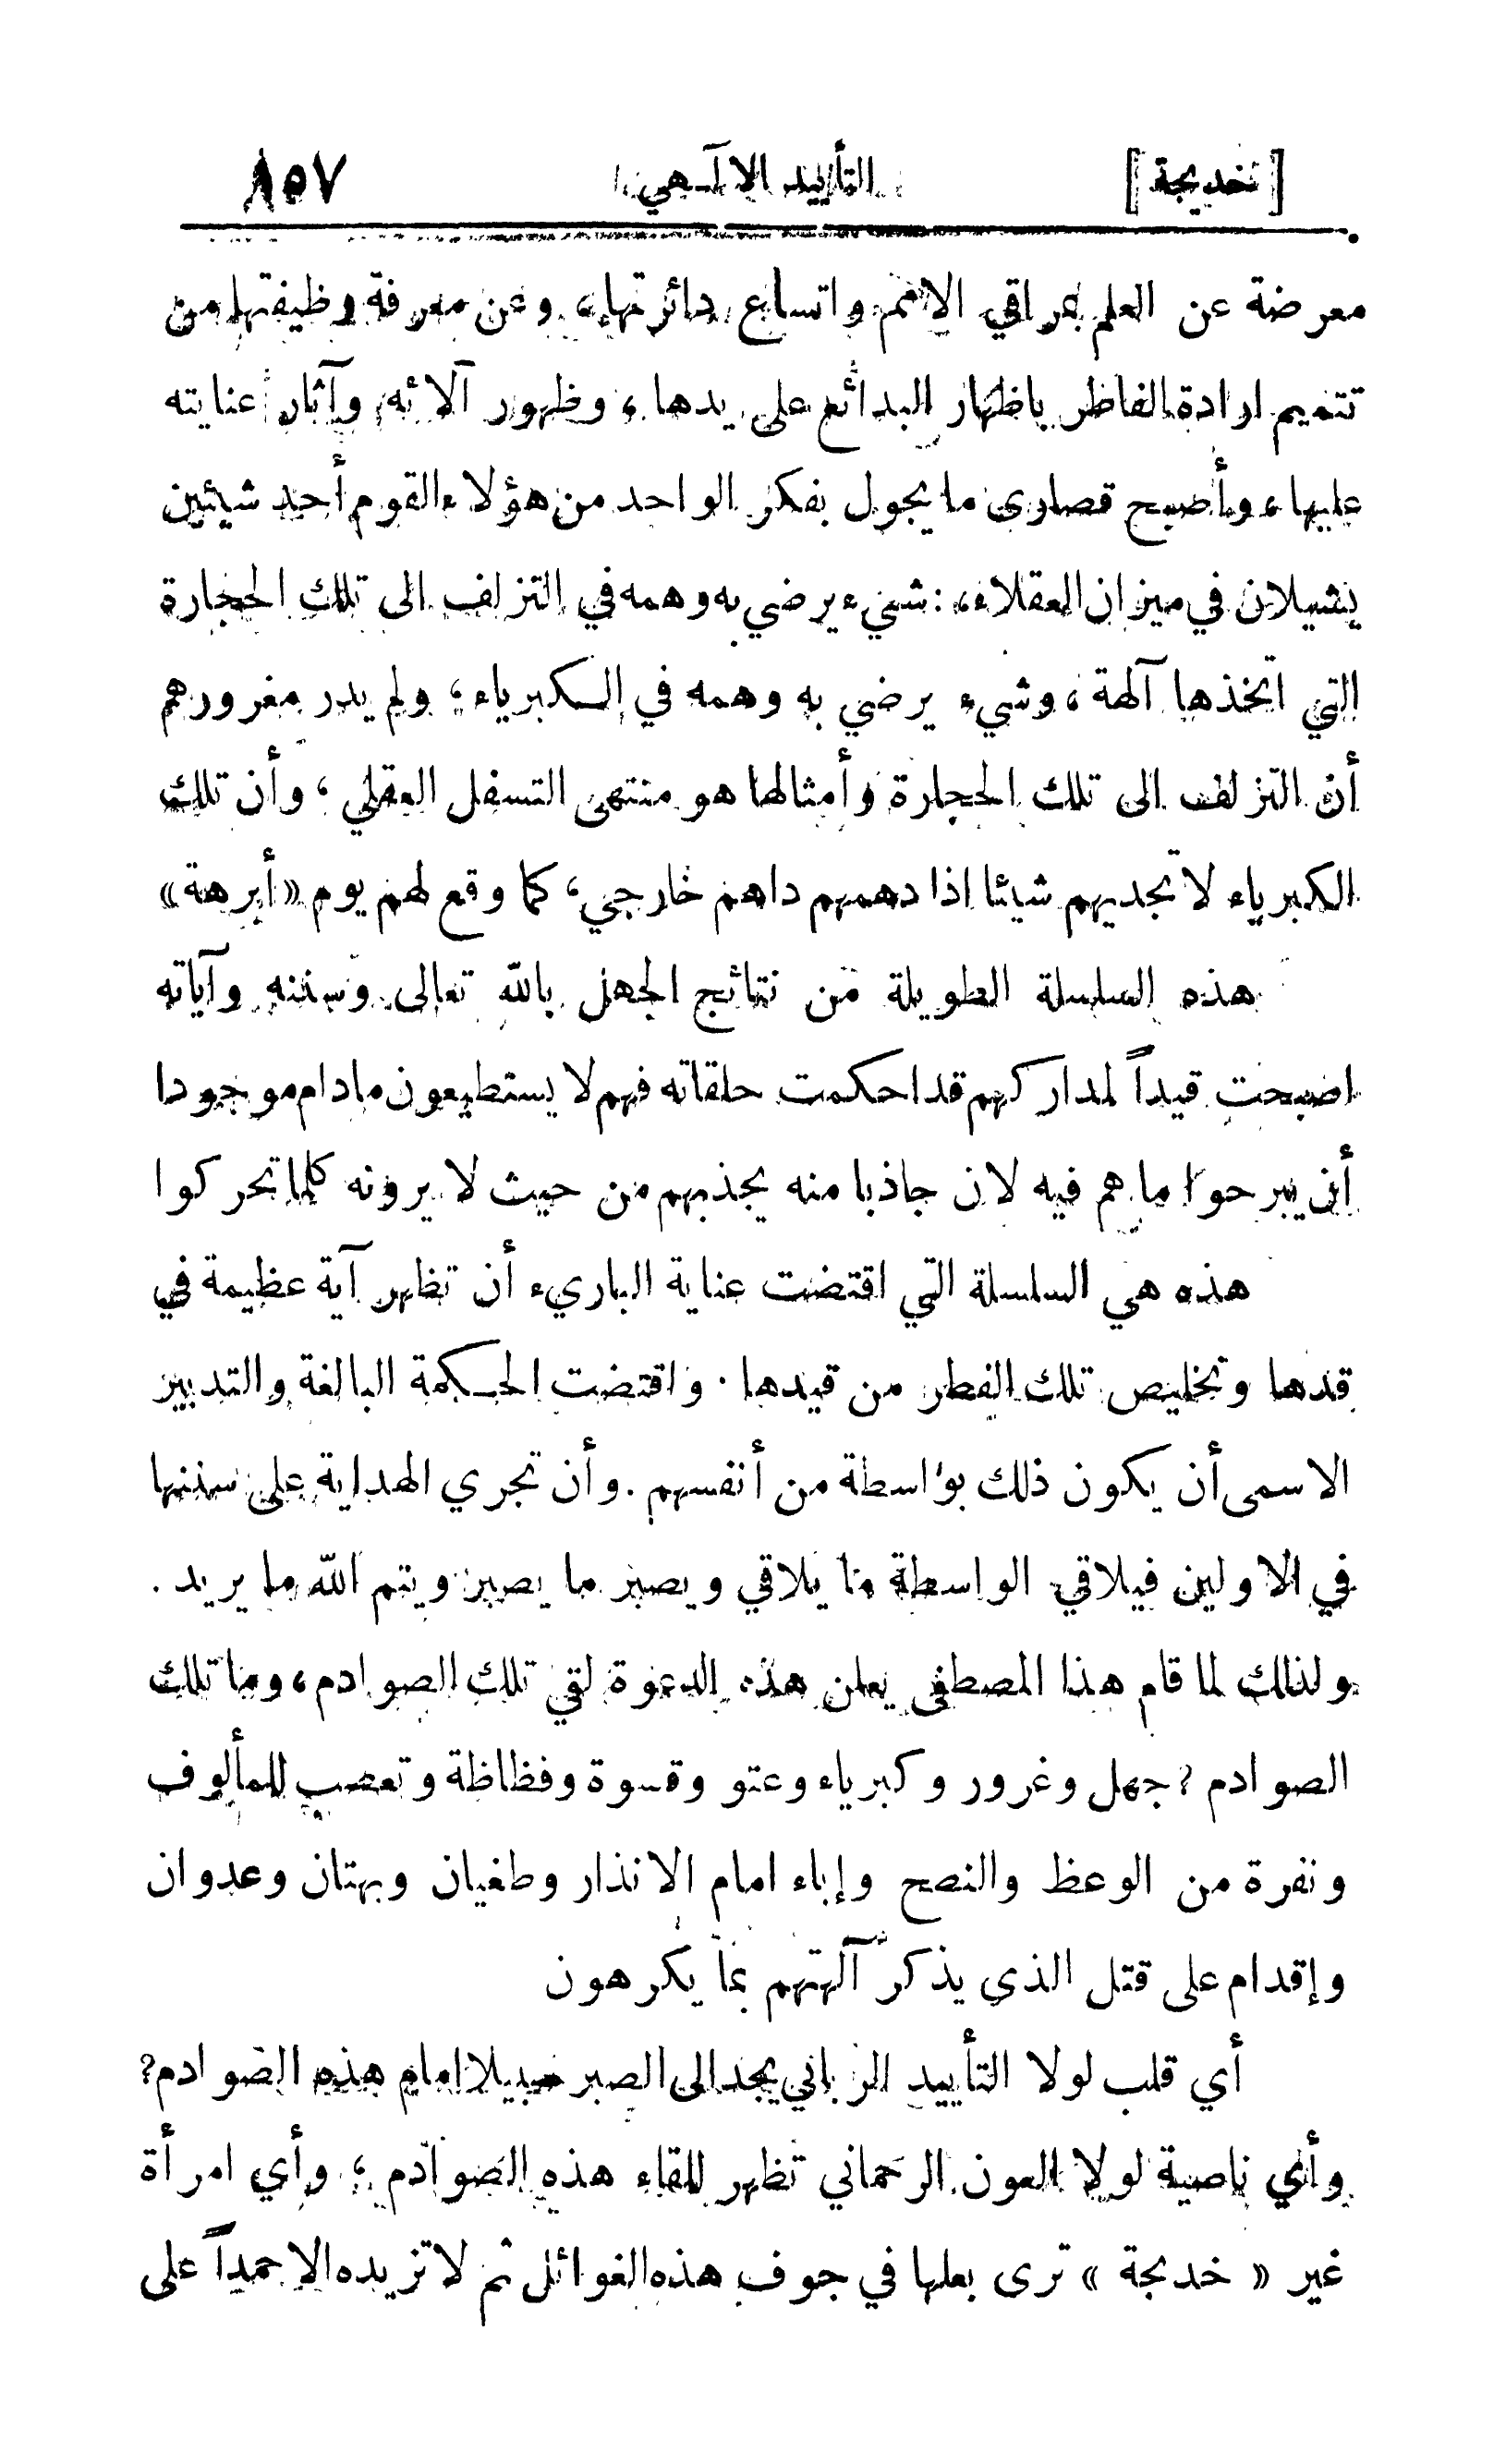 [خديجة] التأييد الالهي ٨٥٧
معرضة عن العلم بمراقي الامم واتساع دائرتها، وعن معرفة وظيفتها من
تتميم ارادة الفاطر باظهار البدائع على يدها، وظهور آلائه وآثار عنايته
عليها، وأصبح قصارى ما يجول بفكر الواحد من هؤلاء القوم أحد شيئين
يشيلان في ميزان العقلاء،: شيء يرضي به وهمه في التزلف الى تلك الحجارة
التي اتخذها آلهة، وشيء يرضي به وهمه في الكبرياء، ولم يدر مغرورهم
أن التزلف الى تلك الحجارة وأمثالها هو منتهى التسفل العقلي، وأن تلك
الكبرياء لا تجديهم شيئا اذا دهمهم داهم خارجي، كما وقع لهم يوم «أبرهة»
هذه السلسلة الطويلة من نتائج الجهل بالله تعالى وسننه وآياته
اصبحت قيداً لمداركهم قد احكمت حلقاته فهم لا يستطيعون مادام موجودا
أن يبرحوا ما هم فيه لان جاذبا منه يجذبهم من حيث لا يرونه كلما تحركوا
هذه هي السلسلة التي اقتضت عناية الباريء أن تظهر آية عظيمة في
قدها وتخليص تلك الفطر من قيدها. واقتضت الحكمة البالغة والتدبير
الاسمى أن يكون ذلك بواسطة من أنفسهم. وأن تجري الهداية على سننها
في الاولين فيلاقي الواسطة ما يلاقي ويصبر ما يصبر ويتم الله ما يريد.
ولذلك لما قام هذا المصطفى يعلن هذه الدعوة لقي تلك الصوادم، وما تلك
الصوادم؟ جهل وغرور وكبرياء وعتو وقسوة وفظاظة وتعصب للمألوف
ونفرة من الوعظ والنصح وإباء امام الانذار وطغيان وبهتان وعدوان
وإقدام على قتل الذي يذكر آلهتهم بما يكرهون
أي قلب لولا التأييد الرباني يجد الى الصبر سبيلا امام هذه الصوادم؟
وأي ناصية لولا العون الرحماني تظهر للقاء هذه الصوادم؛ وأي امرأة
غير «خديجة» ترى بعلها في جوف هذه الغوائل ثم لا تزيده الا حمداً على